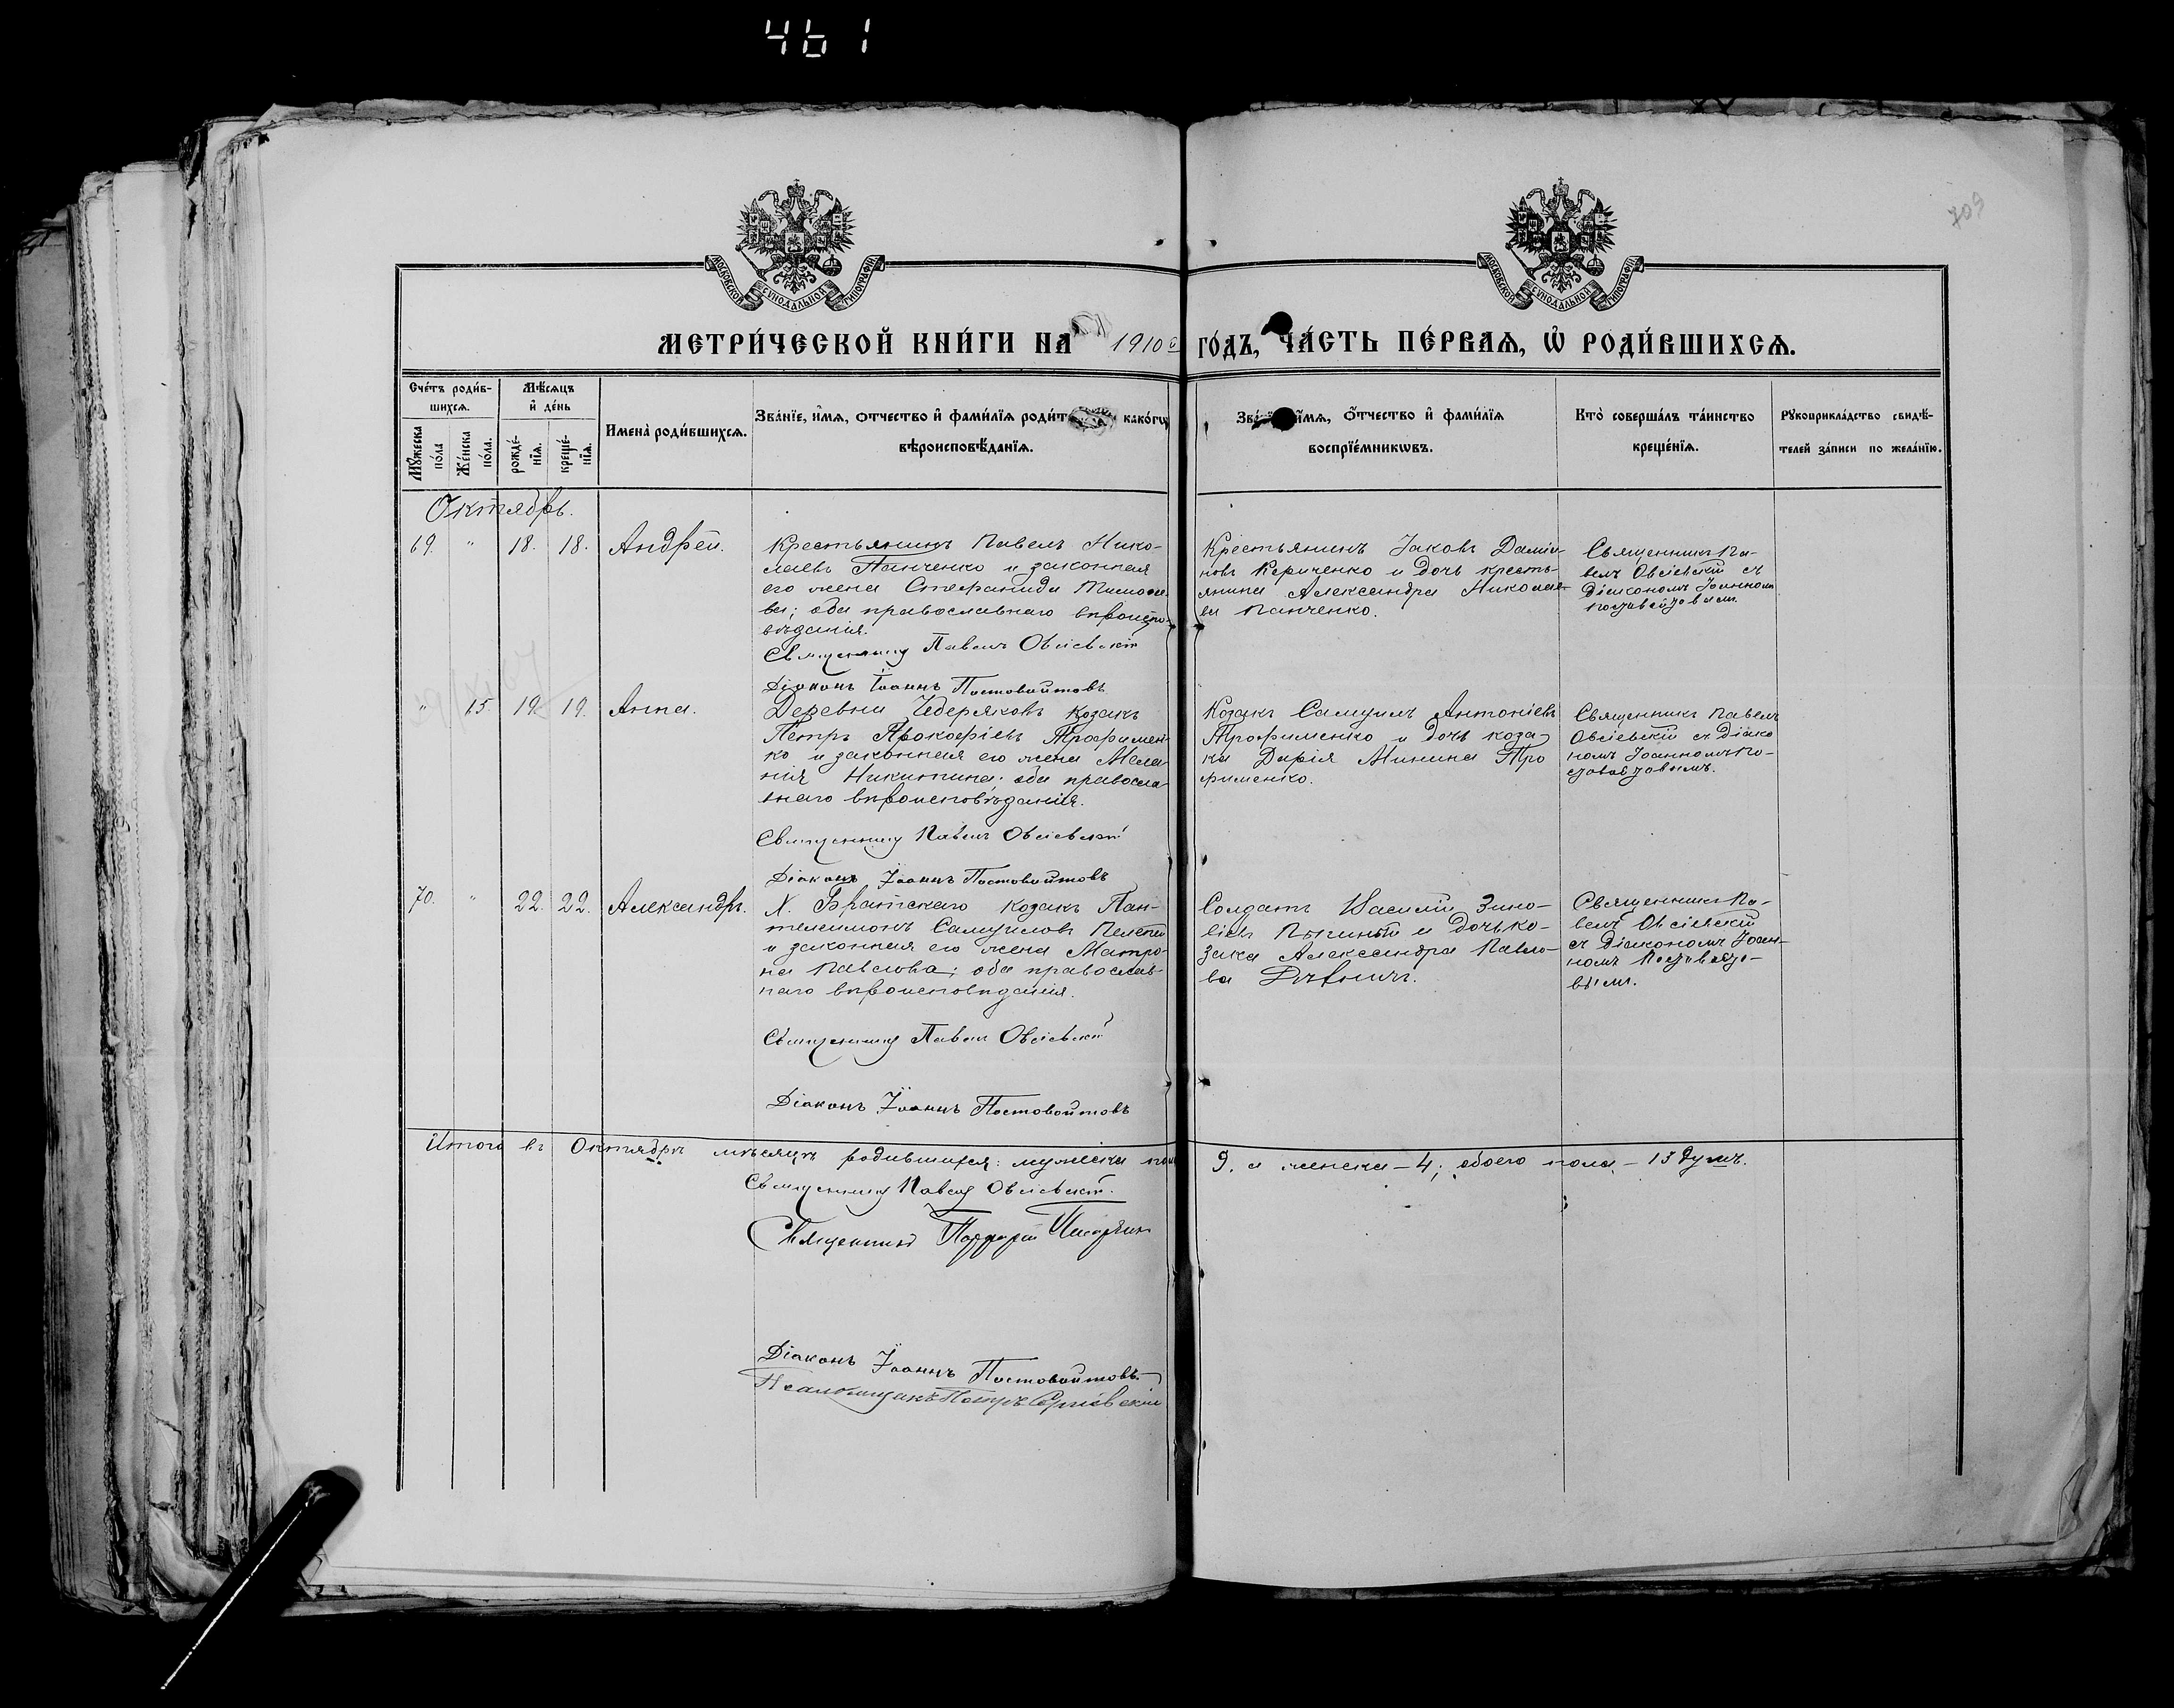 461
709
МОСКОВСКОЙ СУНОДАЛЬНОЙ ТИПОГРАФІИ
МОСКОВСКОЙ СУНОДАЛЬНОЙ ТИПОГРАФІИ
МЕТРИ́ЧЕСКОЙ КНИ́ГИ НА 1910 ГО́ДЪ, ЧА́СТЬ ПЕ́РВАЯ, Ѡ҆ РОДИ́ВШИХСЯ.
Сче́тъ роди́в-
шихся.
Мꙋ́жеска
по́ла
Же́нска
по́ла.
Мѣ́сяцъ
и҆ де́нь
рожде́-
нїя.
креще́-
нїя.
Имена̀ роди́вшихся.
Зва́нїе, и҆́мя, отчество и҆ фами́лїя роди́т како́гѡ
вѣроисповѣ́данїя.
и҆́мя, о҆́тчество и҆ фами́лїя
воспрїе́мникѡвъ.
Кто̀ соверша́лъ та́инство
креще́нїя.
Рꙋкоприкла́дство свидѣ́-
телей за́писи по жела́нїю.
Октябрь.
69. " 18. 18. Андрей.
Крестьянинъ Павелъ Нико-
лаевъ Панченко и законная
его жена Стефанида
ва; оба православнаго вѣроиспо-
вѣданія.
Священникъ Павелъ Овсіевскій
Діаконъ Іоаннъ Постовойтовъ
Крестьянинъ Іаковъ Даміа-
новъ Кириченко и дочь кресть-
янина Александра Николае-
ва Панченко.
Священникъ Па-
велъ Овсіевскій съ
Діакономъ Іоанномъ
Постовойтовымъ.
" 15. 19. 19. Анна.
Деревни Чедеряковъ козакъ
Петръ Прокофіевъ Трофимен-
ко и законная его жена Мела-
нія Никитина; оба правосла-
внаго вѣроисповѣданія.
Священникъ Павелъ Овсіевскій
Діаконъ Іоаннъ Постовойтовъ
Козакъ Самуилъ Антоніевъ
Трофименко и дочь коза-
ка Дарія Минина Тро
фименко.
Священникъ Павелъ
Овсіевскій съ Діако
номъ Іоанномъ По-
стовойтовымъ.
70. " 22. 22. Александръ.
Х. Братскаго козакъ Пан-
телеимонъ Самуиловъ Пелепей
и законная его жена Матро-
на Павлова; оба православ-
наго вѣроисповѣданія.
Священникъ Павелъ Овсіевскій
Діаконъ Іоаннъ Постовойтовъ
Солдатъ Василій Зино-
віевъ и дочь ко-
зака Александра Павло-
ва
Священникъ Па-
велъ Овсіевскій
съ Діакономъ Іоан-
номъ Постовойто-
вымъ.
Итого въ Октябрѣ мѣсяцѣ родившихся: мужска пола 9, а женска – 4; обоего пола – 13 душъ.
Священникъ Павелъ Овсіевскій.
Священникъ
Діаконъ Іоаннъ Постовойтовъ.
Псаломщикъ Петръ Сергіевскій